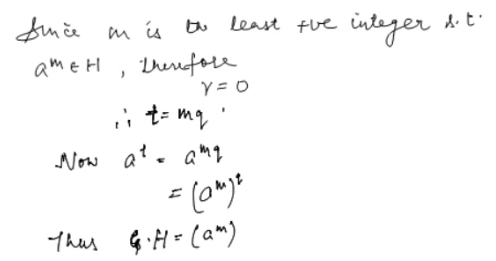 Since m is the least +ve integer s.t.
aᵐ ∈ H , therefore
r = 0
∴ t = mq
Now aᵗ = aᵐq
= (aᵐ)q
Thus G.H = (aᵐ)